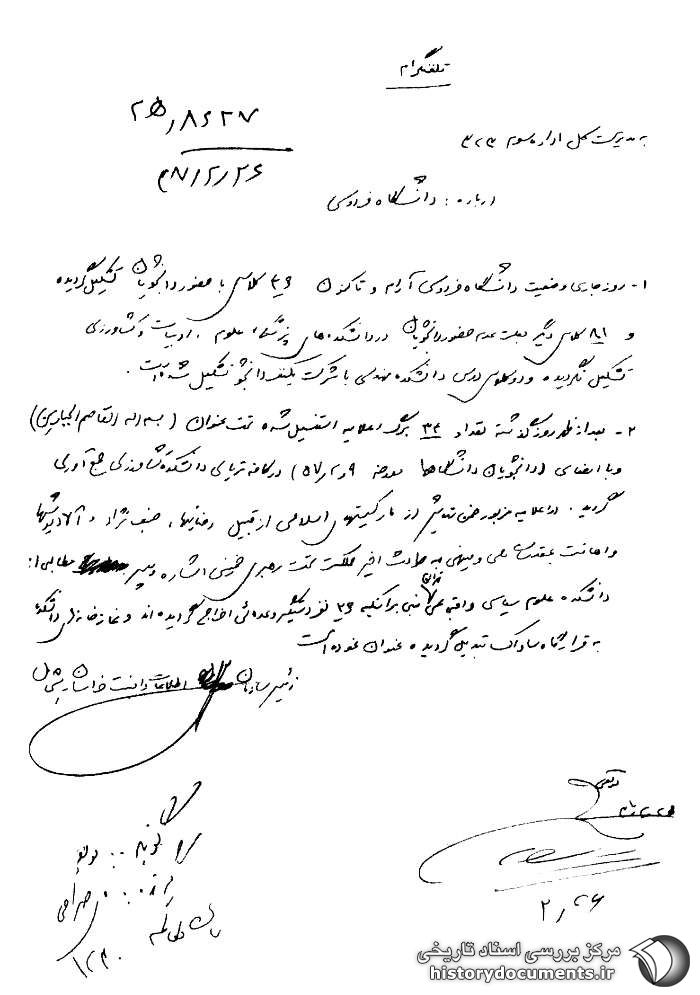 تلفگرام
۲۵/۸۶۲۷
به مدیریت کل اداره سوم ۳۲۳
۳۷/۲/۲۶
درباره : دانشگاه فردوسی
۱- روز جاری وضعیت دانشگاه فردوسی آرام و تاکنون ۳۶ کلاس با حضور دانشجویان تشکیل گردیده
و ۸۱ کلاس دیگر بعلت عدم حضور دانشجویان در دانشکده‌های پزشکی، علوم ، ادبیات و کشاورزی
تشکیل نگردیده و دو کلاس درس دانشکده مهندسی با شرکت یکنفر دانشجو تشکیل شده است .
۲- بعد از ظهر روز گذشته تعداد ۳۴ برگ اعلامیه استنسیل شده تحت عنوان (بسم اله القاصم الجبارین)
و با امضای (دانشجویان دانشگاهها مورخه ۵۷/۲/۹) در کافه تریای دانشکده کشاورزی جمع آوری
گردید . در اعلامیه مزبور ضمن از مارکسیستهای اسلامی از قبیل رضائیها، حنیف نژاد و
و اهانت بمقدسات ملی و میهنی به حوادث اخیر مملکت تحت رهبری خمینی اشاره و سپس مطالبی از
دانشکده علوم سیاسی و تهران مبنی بر اینکه ۳۶ نفر دستگیر و عده‌ای اخراج گردیده‌اند و نمازخانه دانشکده
به قرارگاه ساواک تبدیل گردیده عنوان نموده است
رئیس سازمان اطلاعات و امنیت خراسان
گوینده :
۲/۲۶
مرکز بررسی اسناد تاریخی
historydocuments.ir